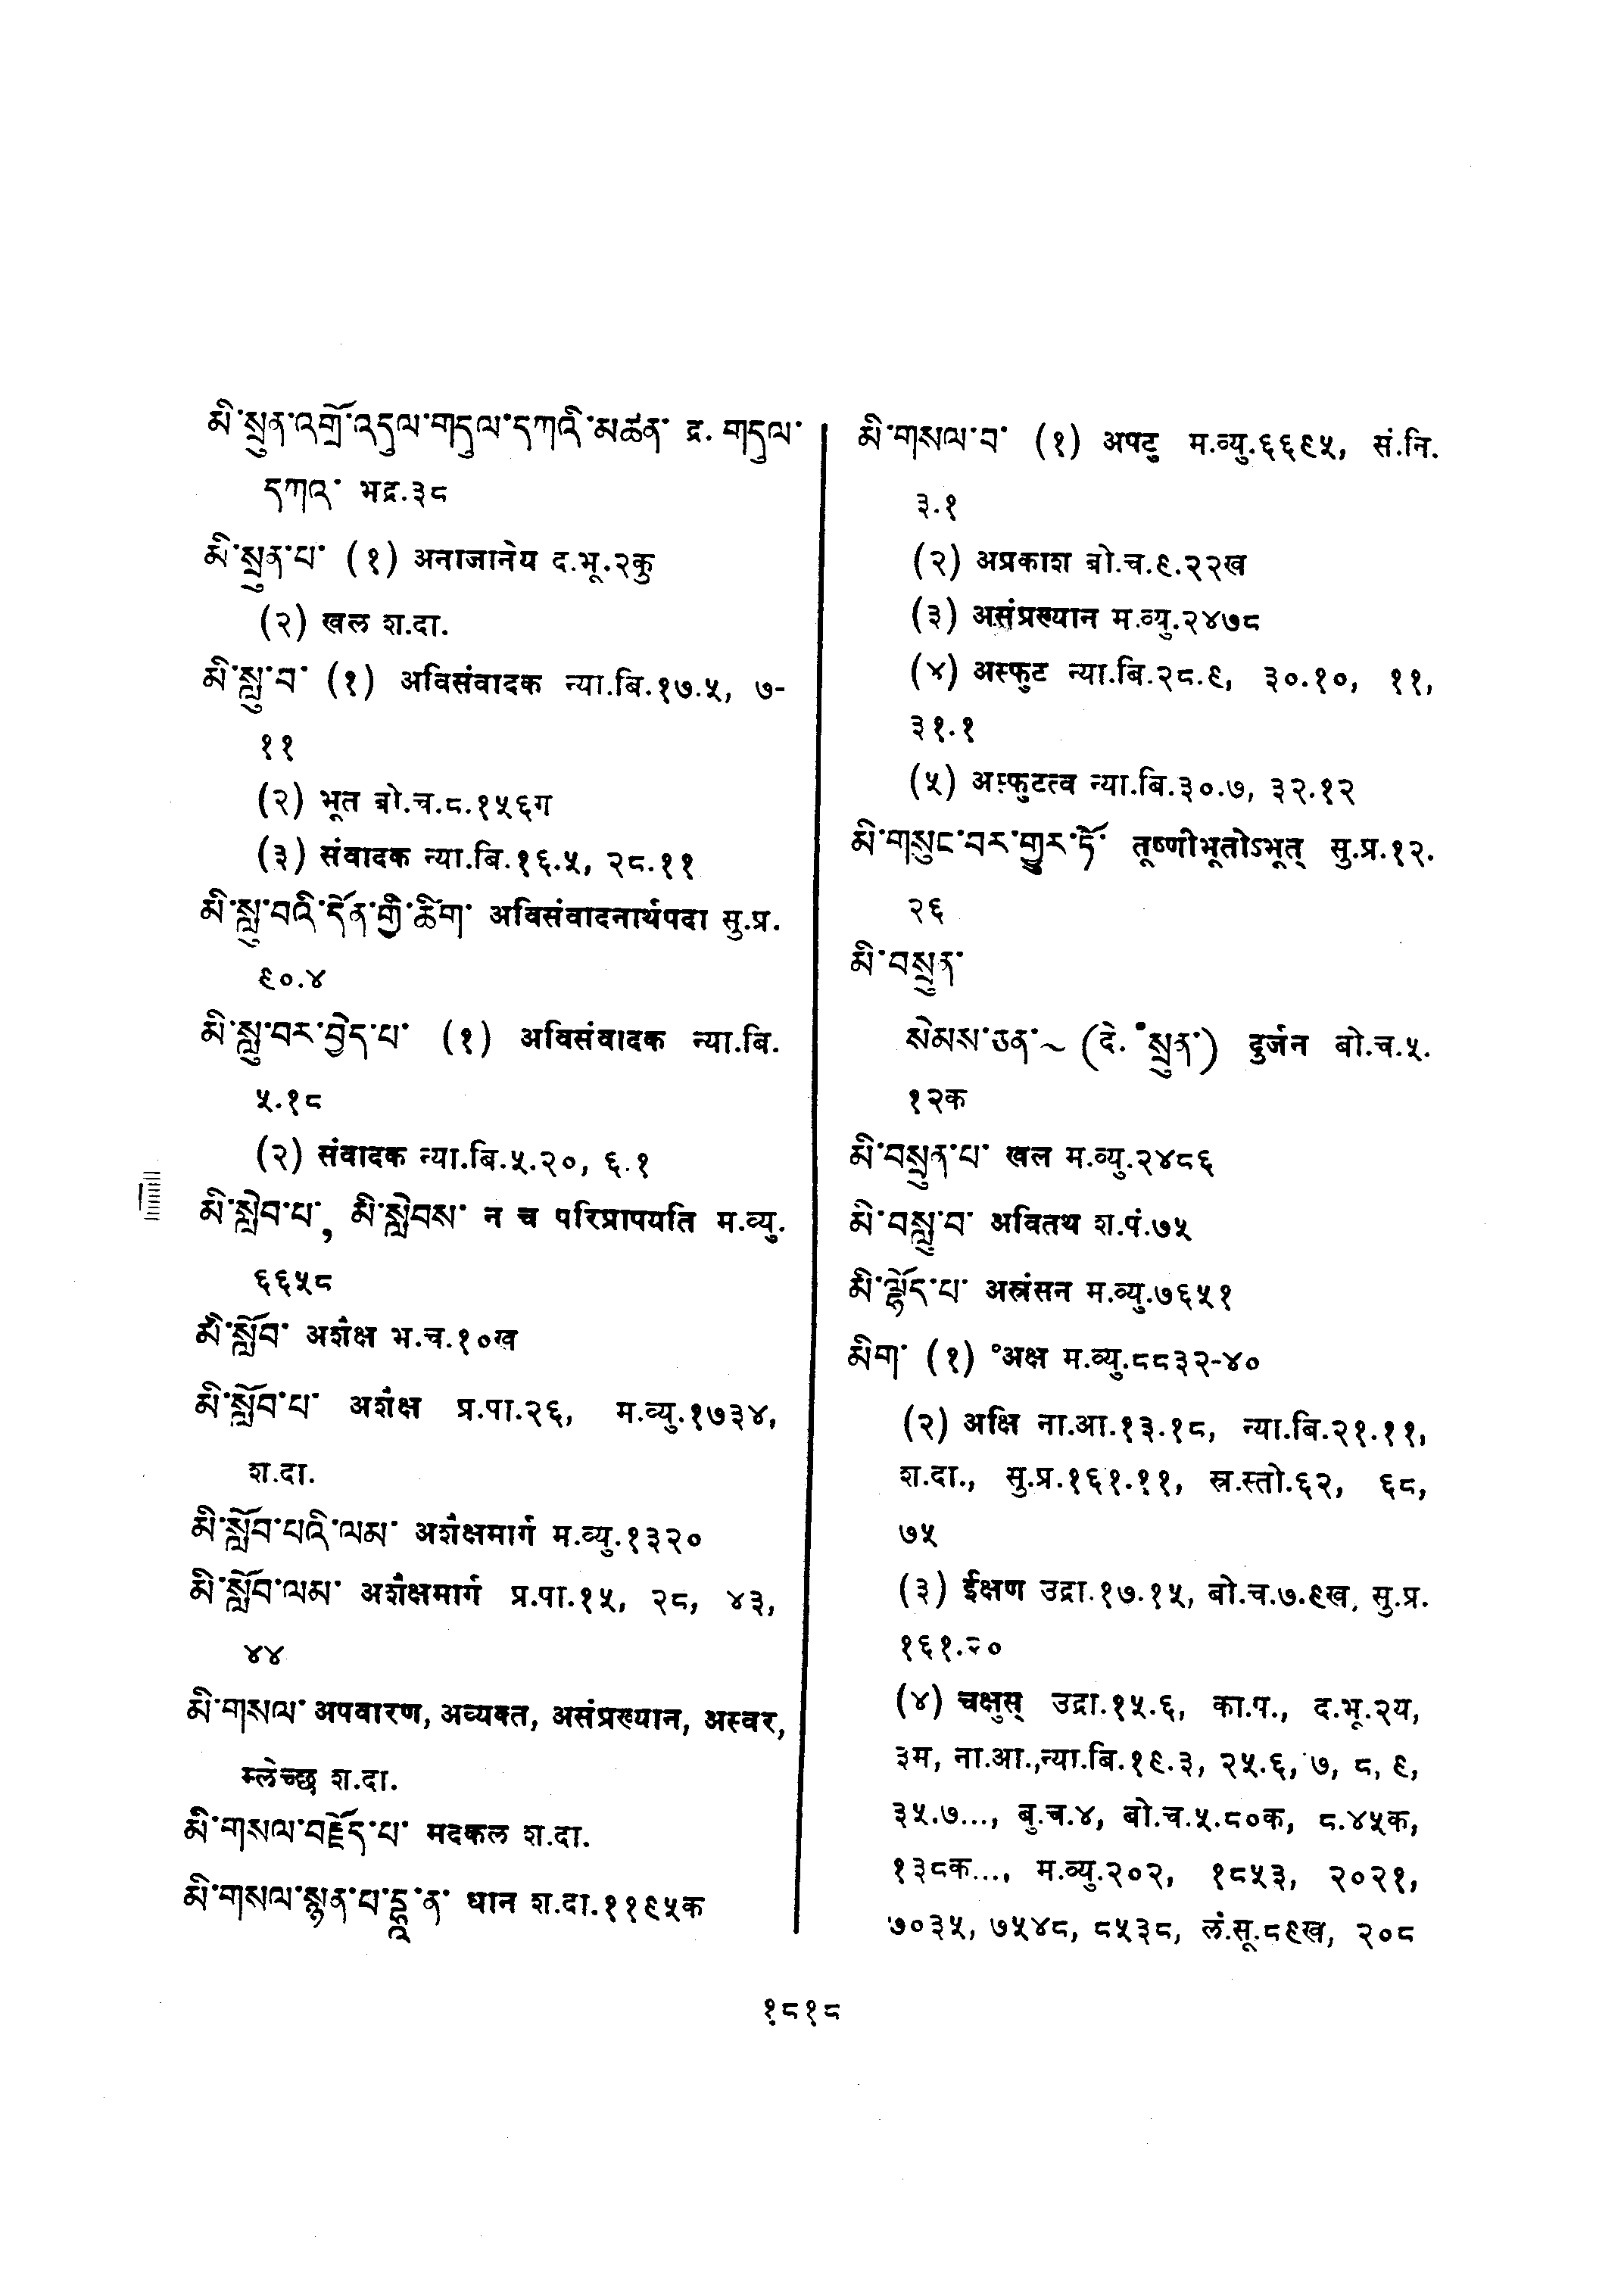 མི་སྲུན་འགྲོ་འདུལ་གདུལ་དཀའི་མཚན་ द्र. གདུལ་
དཀའ་ भद्र.३८
མི་སྲུན་པ་ (१) अनाजानेय द.भू.२कु
(२) खल श.दा.
མི་སླུ་བ་ (१) अविसंवादक न्या.बि.१७.५, ७-
११
(२) भूत बो.च.८.१५६ग
(३) संवादक न्या.बि.१६.५, २८.११
མི་སླུ་བའི་དོན་གྱི་ཚིག་ अविसंवादनार्थपदा सु.प्र.
९०.४
མི་སླུ་བར་བྱེད་པ་ (१) अविसंवादक न्या.बि.
५.१८
(२) संवादक न्या.बि.५.२०, ६.१
མི་སླེབ་པ་, མི་སླེབས་ न च परिप्रापयति म.व्यु.
६६५८
མི་སློབ་ अशैक्ष भ.च.१०ख
མི་སློབ་པ་ अशैक्ष प्र.पा.२६, म.व्यु.१७३४,
श.दा.
མི་སློབ་པའི་ལམ་ अशैक्षमार्ग म.व्यु.१३२०
མི་སློབ་ལམ་ अशैक्षमार्ग प्र.पा.१५, २८, ४३,
४४
མི་གསལ་ अपवारण, अव्यक्त, असंप्रख्यान, अस्वर,
म्लेच्छ श.दा.
མི་གསལ་བརྗོད་པ་ मदकल श.दा.
མི་གསལ་སྙན་པ་ धान श.दा.११९५क
མི་གསལ་བ་ (१) अपटु म.व्यु.६६९५, सं.नि.
३.१
(२) अप्रकाश बो.च.९.२२ख
(३) असंप्रख्यान म.व्यु.२४७८
(४) अस्फुट न्या.बि.२८.९, ३०.१०, ११,
३१.१
(५) अस्फुटत्व न्या.बि.३०.७, ३२.१२
མི་གསུང་བར་གྱུར་ཏོ་ तूष्णीभूतोऽभूत् सु.प्र.१२.
२६
མི་བསྲུན་
སེམས་ཅན་~ (दे. ॰སྲུན་) दुर्जन बो.च.५.
१२क
མི་བསྲུན་པ་ खल म.व्यु.२४८६
མི་བསླུ་བ་ अवितथ श.पं.७५
མི་ལྷོད་པ་ अस्रंसन म.व्यु.७६५१
མིག་ (१) °अक्ष म.व्यु.८८३२-४०
(२) अक्षि ना.आ.१३.१८, न्या.बि.२१.११,
श.दा., सु.प्र.१६१.११, स्र.स्तो.६२, ६८,
७५
(३) ईक्षण उद्रा.१७.१५, बो.च.७.९ख, सु.प्र.
१६१.२०
(४) चक्षुस् उद्रा.१५.६, का.प., द.भू.२य,
३म, ना.आ.,न्या.बि.१९.३, २५.६, ७, ८, ९,
३५.७..., बु.च.४, बो.च.५.८०क, ८.४५क,
१३८क..., म.व्यु.२०२, १८५३, २०२१,
७०३५, ७५४८, ८५३८, लं.सू.८९ख, २०८
१८१८